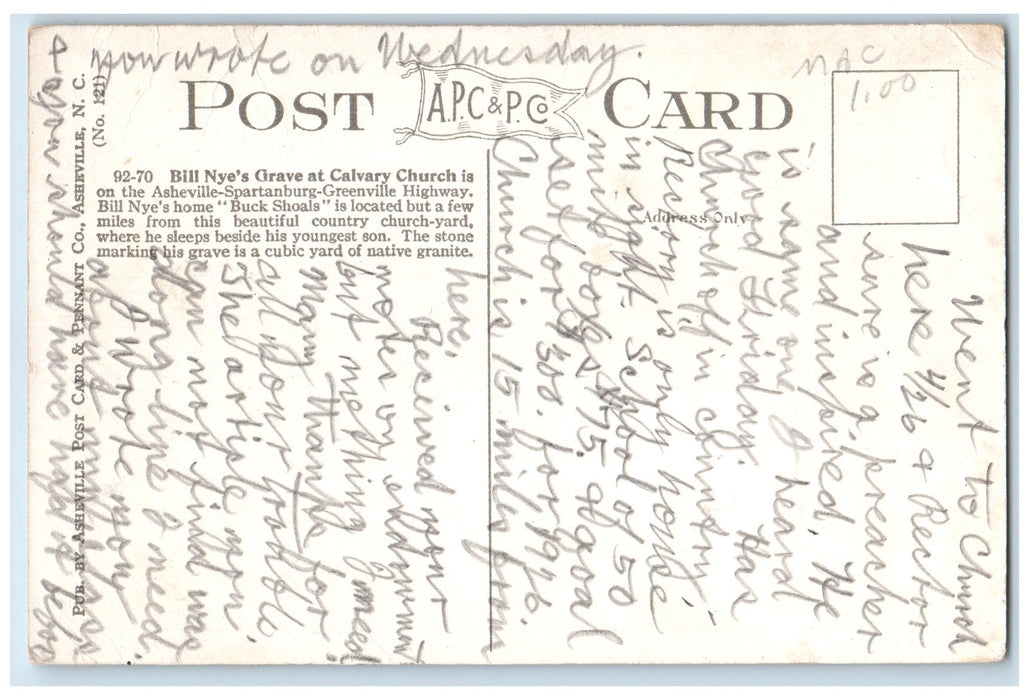 & now wrote on Wednesday.
POST CARD
A.P.C. & P. Co
NAC
1.00
PUB. BY ASHEVILLE POST CARD & PENNANT CO., ASHEVILLE, N. C.
(No. 121)
92-70 Bill Nye's Grave at Calvary Church is
on the Asheville-Spartanburg-Greenville Highway.
Bill Nye's home "Buck Shoals" is located but a few
miles from this beautiful country church-yard,
where he sleeps beside his youngest son. The stone
marking his grave is a cubic yard of native granite.
Address Only
Went to Church
here 4/26 & Rector
sure is a preacher
and inspired. He
is same one I heard
Good Friday. Has
Church off in country
Rectory is only house
in sight. School of 50
mite boxes $175. & goal
set for 300. for 1926.
Church is 15 miles from
here,
Received your
notes on endowment
but nothing I need
Many thanks for
all your trouble.
The article upon
upon not find was
along line I need.
I wrote you
about
& you should have